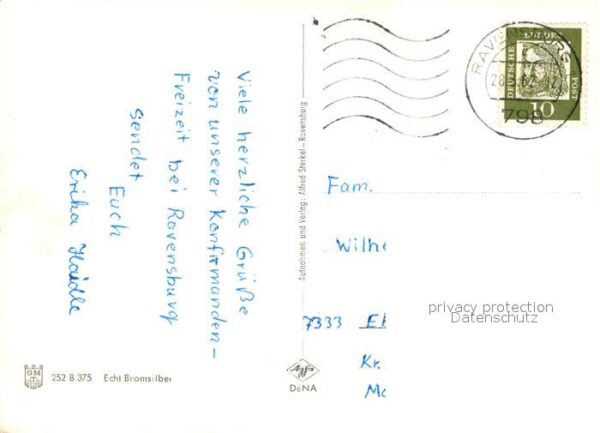 Viele herzliche Grüße
von unserer Konfirmanden-
Freizeit bei Ravensburg
sendet
Euch
Erika Haidle
Aufnahmen und Verlag: Alfred Sterkel - Ravensburg
RAVENSBURG
798
DEUTSCHE
POST
10
Fam.
Wilhe
7333 El
Kr.
privacy protection
Datenschutz
252 B 375 Echt Bromsilber
Agfa
DeNA